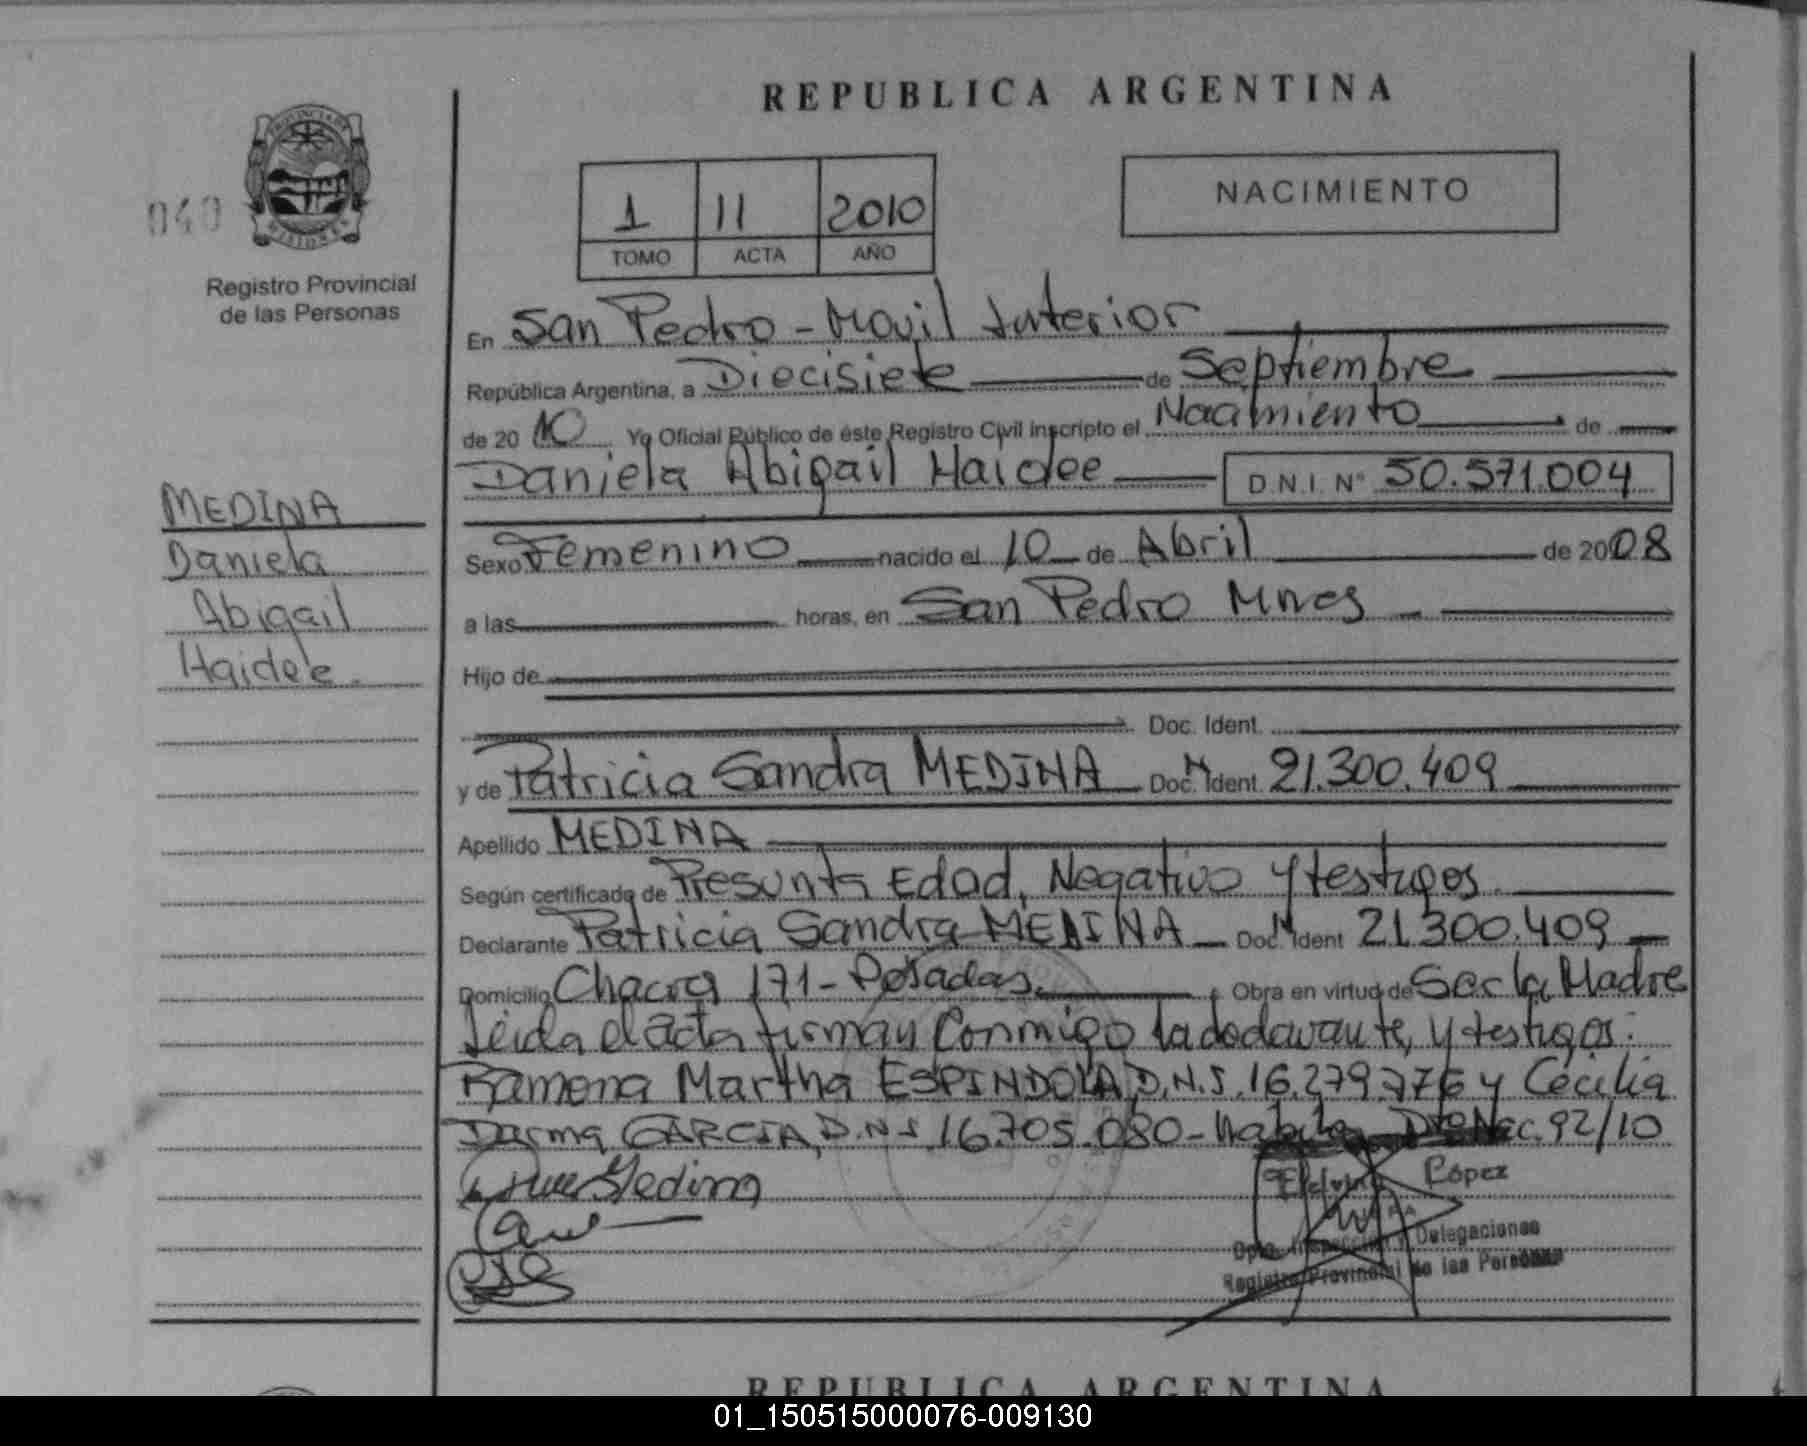 REPUBLICA ARGENTINA
PROVINCIA DE
MISIONES
040
Registro Provincial
de las Personas
1 11 2010
TOMO ACTA AÑO
NACIMIENTO
En San Pedro - Movil Interior
República Argentina, a Diecisiete de Septiembre
de 2010 Yo Oficial Público de éste Registro Civil inscripto el Nacimiento de
Daniela Abigail Haidee D.N.I. Nº 50.571.004
MEDINA
Daniela
Abigail
Haidee.
Sexo Femenino nacido el 10 de Abril de 2008
a las horas, en San Pedro Mnes
Hijo de
Doc. Ident.
y de Patricia Sandra MEDINA Doc. Ident. 21.300.409
Apellido MEDINA
Según certificado de Presunta Edad, Negativo y testigos.
Declarante Patricia Sandra MEDINA Doc. Ident 21.300.409
Domicilio Chacra 171 - Posadas. Obra en virtud de Ser la Madre
Leida el acta firman Conmigo la declarante, y testigos:
Ramona Martha ESPINDOLA, D.N.I. 16.279.776 y Cecilia
GARCIA, D.N.I 16.705.080 - Dto Nac. 92/10
Medina
López
Dpto. Inspección y Delegaciones
Registro Provincial de las Personas
REPUBLICA ARGENTINA
01_150515000076-009130